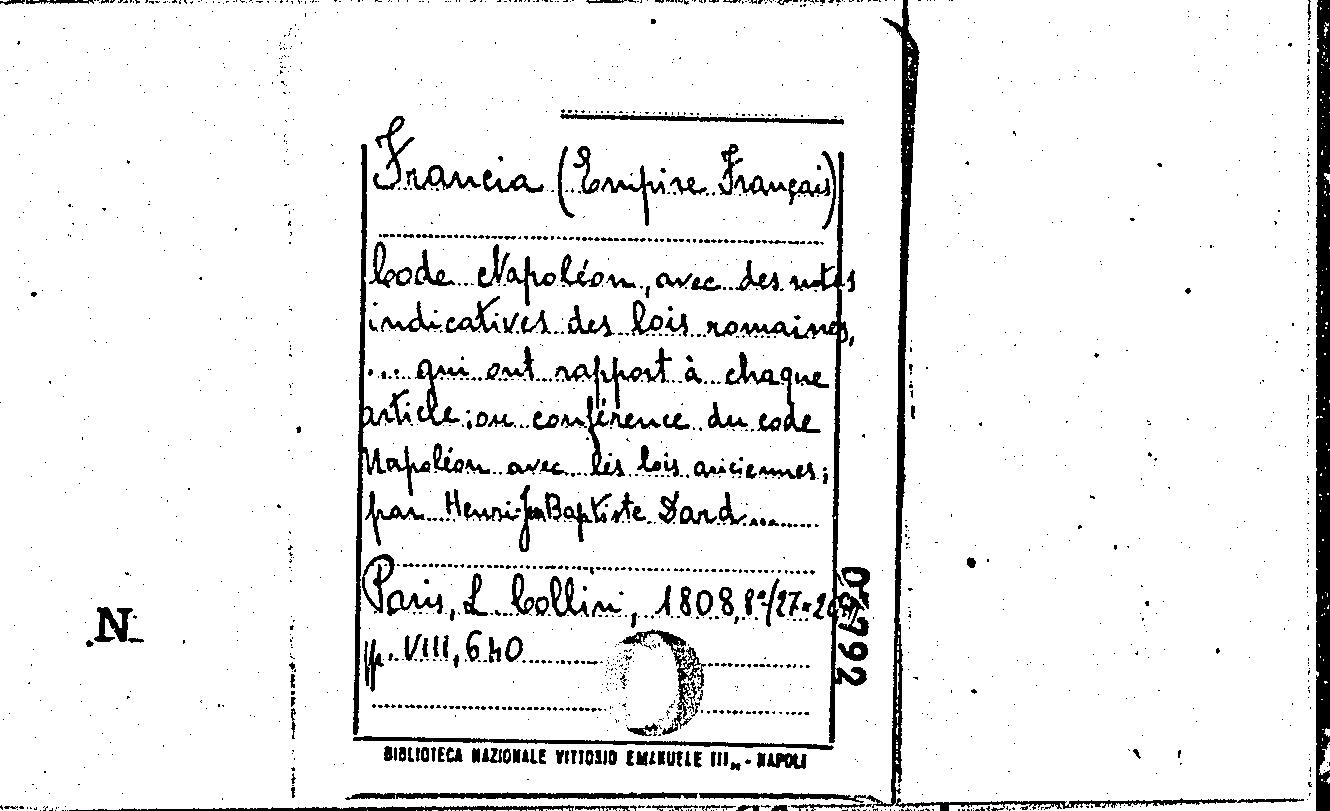 Francia (Empire Français)
Code Napoléon, avec des notes
indicatives des lois romaines,
... qui ont rapport à chaque
article; ou conférence du code
Napoléon avec les lois anciennes;
par Henri-Jean Baptiste Dard...
Paris, L. Collin, 1808, 8°/27×20
pp. VIII, 640
N
BIBLIOTECA NAZIONALE VITTORIO EMANUELE III - NAPOLI